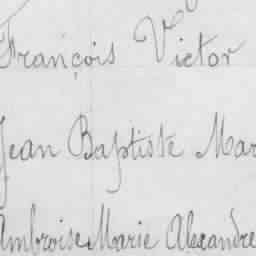 François Victor
Jean Baptiste Mar
Ambroise Marie Alexandre